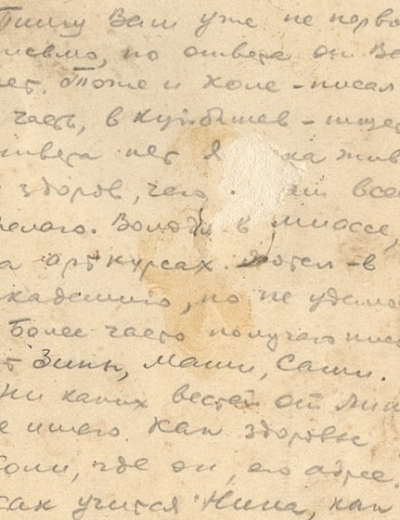 Пишу Вам уже не перво
письмо, но ответа от Ва
нет. Тоже и Коле - писал
часть, в Куйбышев - ищет
ответа нет Я ка жив
здоров, чего всег
желаю. Володя в Миассе,
а арт курсах. Хотел в
кадемию, но не удало
Более часто получаю пис
т Зины, Маши, Саши.
Ни каких вестей от Лип
е имею. Как здоровье
Коли, где он, его адрес.
как учится Нина, как